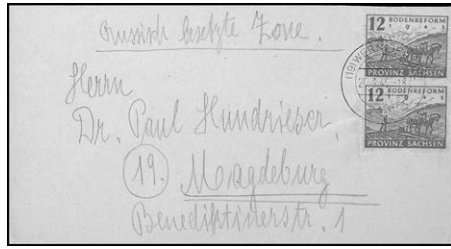 Russisch besetzte Zone.
12 BODENREFORM
1945
PROVINZ SACHSEN
12 BODENREFORM
1945
PROVINZ SACHSEN
(19)
Herrn
Dr. Paul Hundrieser,
(19.) Magdeburg
Benediktinerstr. 1